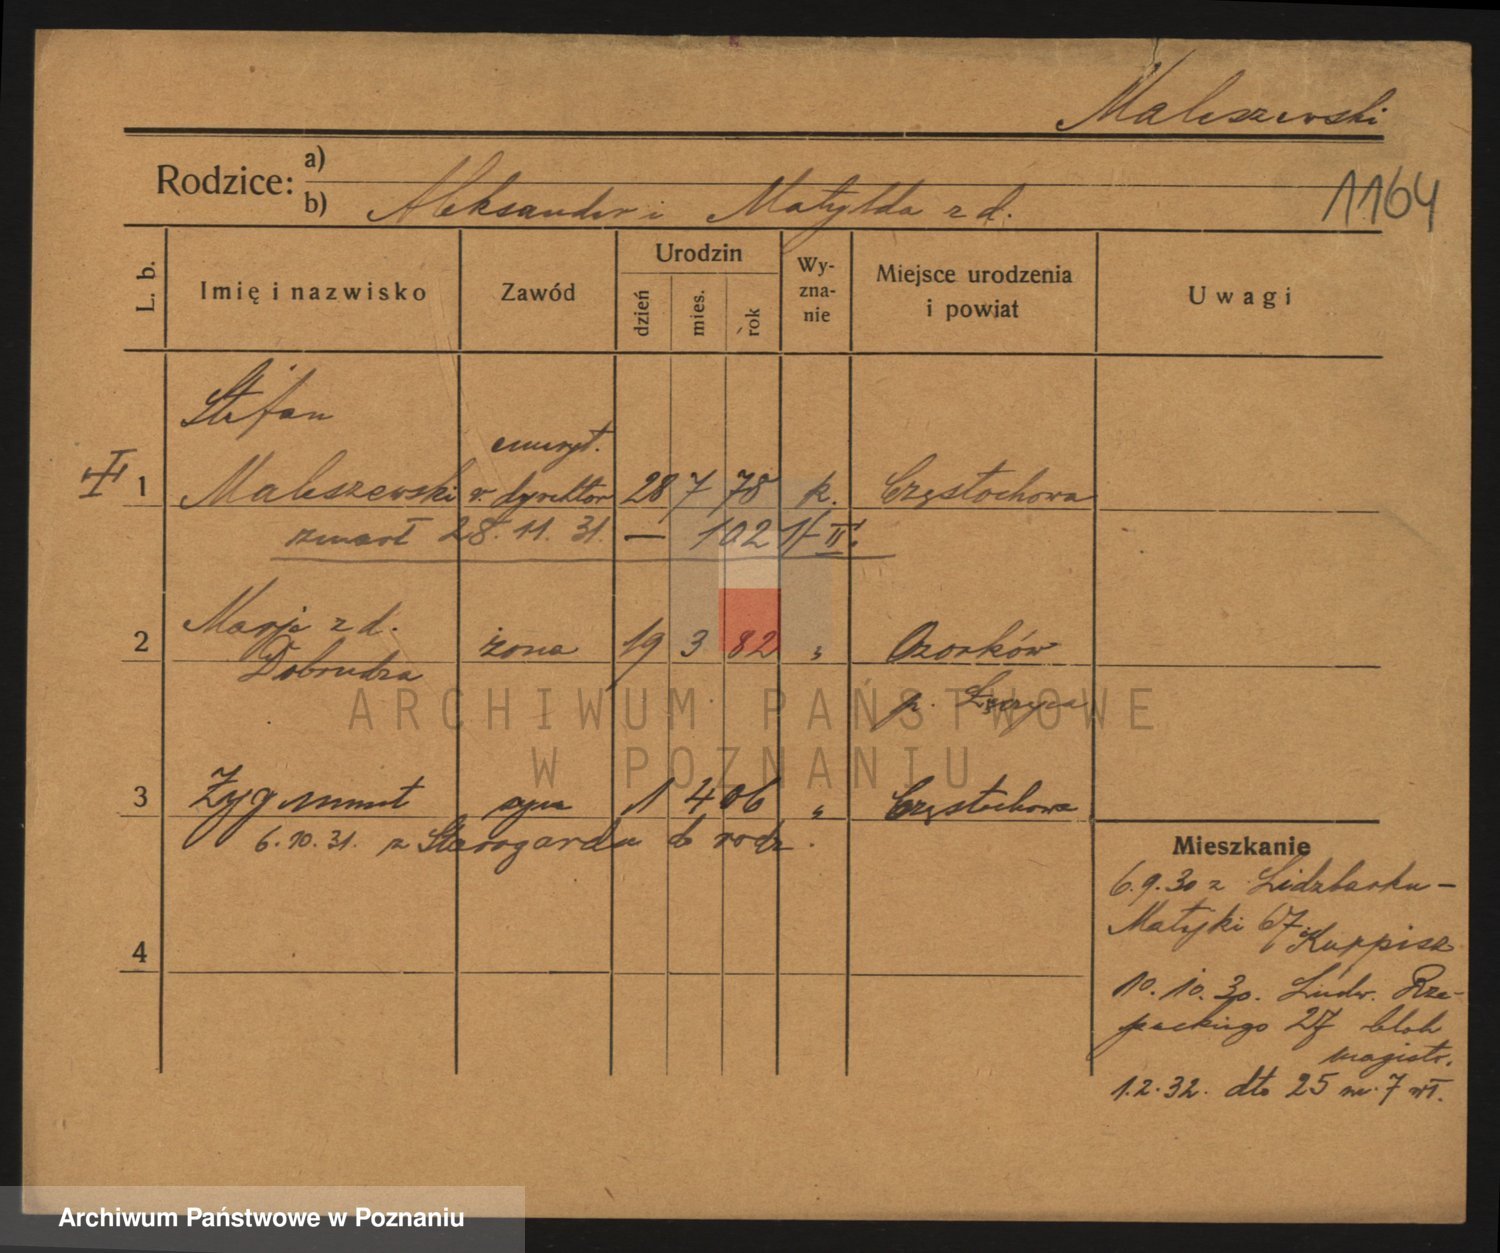 Maleszewski
Rodzice: a)
b) Aleksander i Matylda z d.
1164
L. b.
Imię i nazwisko
Zawód
Urodzin
dzień
mies.
rok
Wy-
zna-
nie
Miejsce urodzenia
i powiat
Uwagi
Stefan
emeryt.
1 Maleszewski v. dyrektor 28 7 78 k. Częstochowa
zmarł 28.11.31. — 1021/II.
2 Marja z d. żona 19 3 82 " Ozorków
Dobrudza
p. Łęczyca
3 Zygmunt syn 1 4 06 " Częstochowa
6.10.31. z Starogardu do rodz.
4
Mieszkanie
6.9.30 z Lidzbarku –
Matejki 67 Kuppisz
10.10.30. Ludw. Rze-
peckiego 27 blok
magistr.
1.2.32. dto 25 m. 7 wł.
ARCHIWUM PAŃSTWOWE
W POZNANIU
Archiwum Państwowe w Poznaniu